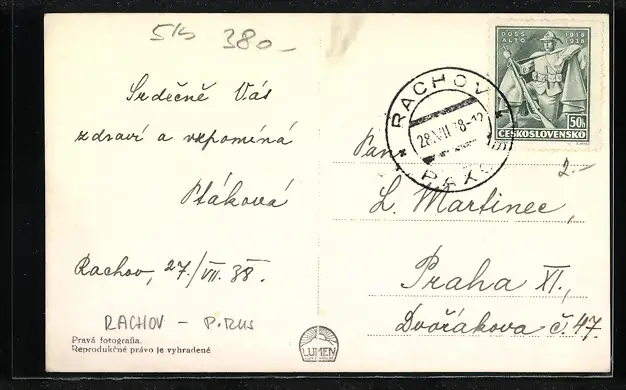 5Kč 380-
DOSS ALTO 1918 1938
50h
ČESKOSLOVENSKO
RACHOV
28.VII 38-12
Srdečně Vás
zdraví a vzpomíná
Ptáková
Rachov, 27./VII. 38.
RACHOV - P.RUS
Pravá fotografia.
Reprodukčné právo je vyhradené
LUMEN
Pan
2.-
L. Martinec,
Praha XI.,
Dvořákova č. 47.